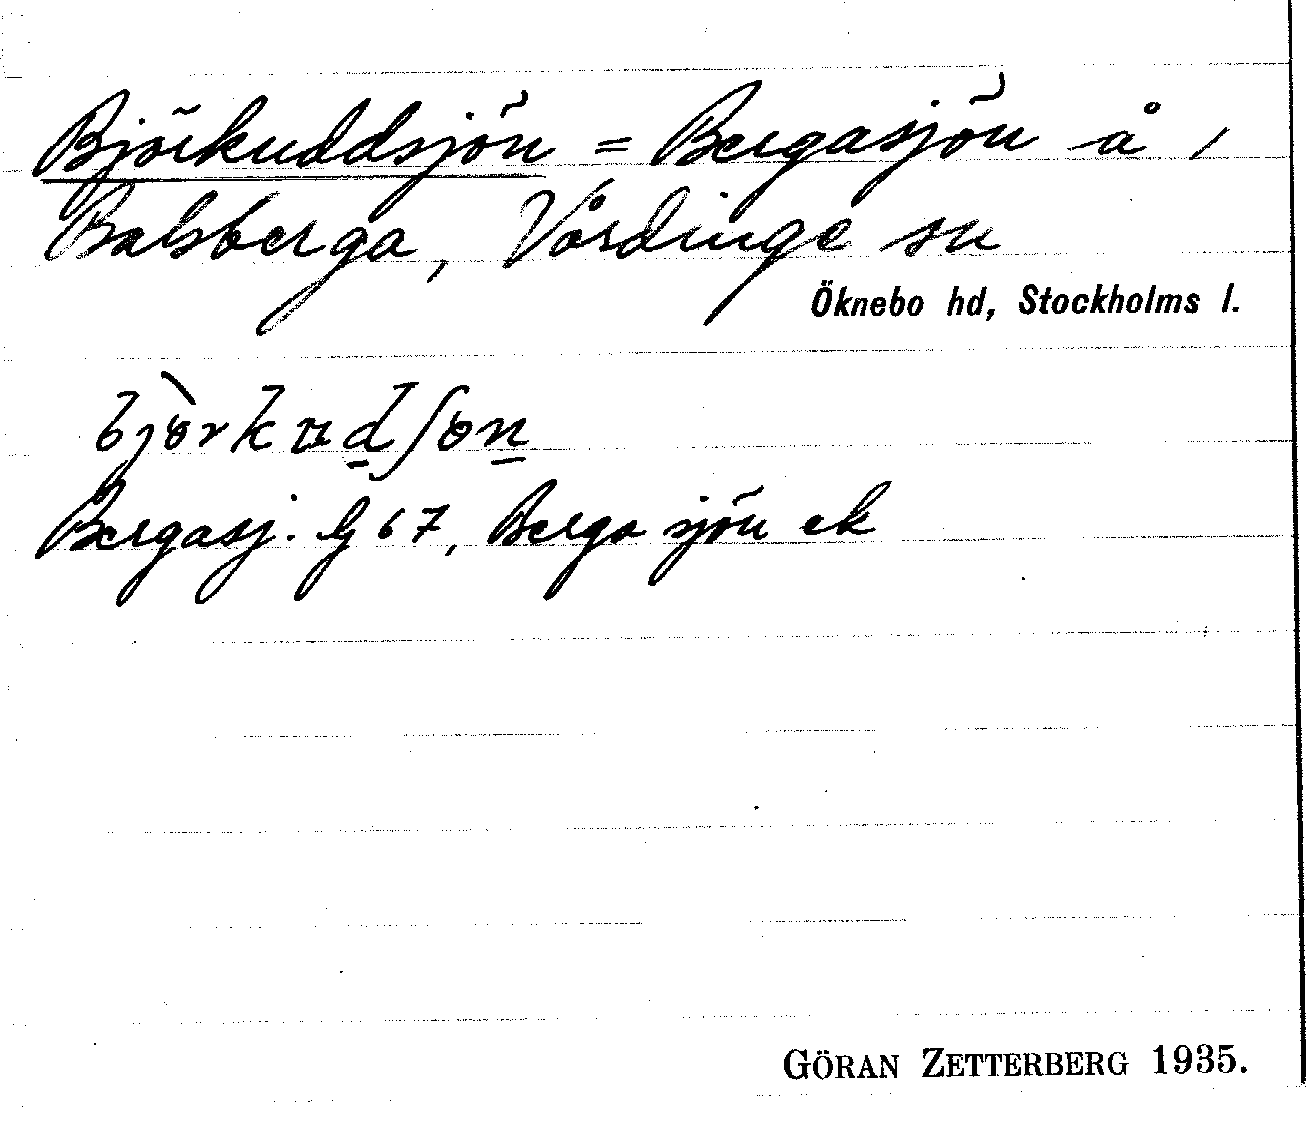 Björkuddsjön = Bergasjön å i
Balsberga, Vårdinge sn
Öknebo hd, Stockholms l.
Bergasj. G 67, Berga sjön ek
GÖRAN ZETTERBERG 1935.